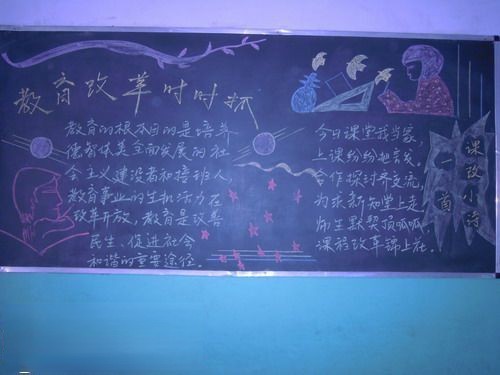 教育改革时时抓
教育的根本目的是培养
德智体美全面发展的社
会主义建设者和接班人,
教育事业的生机活力在
改革开放。教育是改善
民生、促进社会
和谐的重要途径。
课改小诗
一首
今日课堂我当家,
上课纷纷把言发,
合作探讨齐交流,
为求新知堂上走
师生默契顶呱呱,
课程改革锦上花。